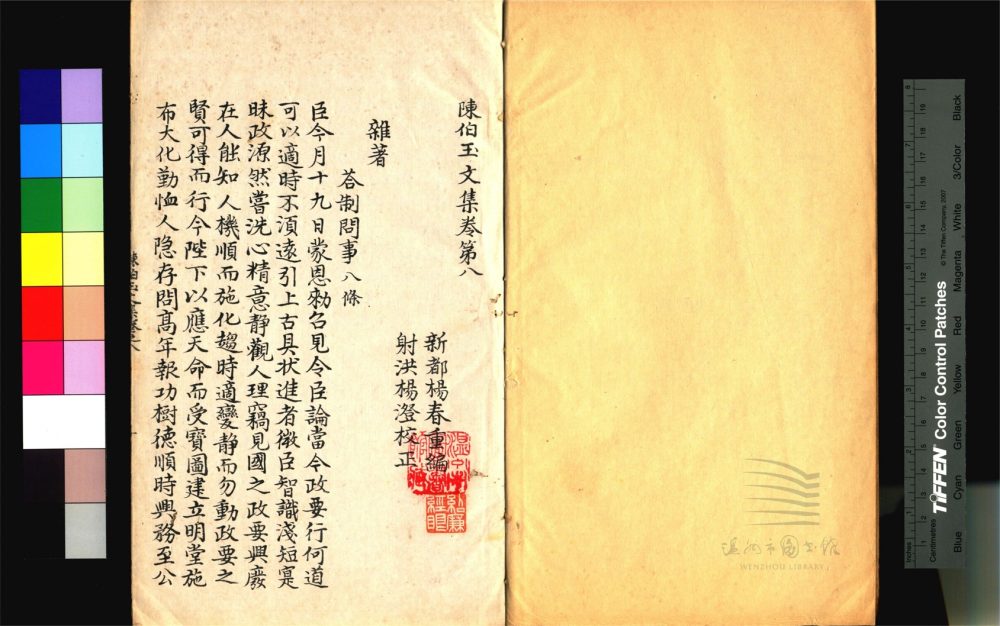 陳伯玉文集卷第八
新都楊春重編
射洪楊澄校正
雜著
荅制問事八條
臣今月十九日蒙恩勑召見令臣論當今政要行何道
可以適時不湏遠引上古具狀進者微臣智識淺短寔
昧政源然嘗洗心精意静觀人理竊見國之政要興廢
在人能知人機順而施化趨時適變静而勿動政要之
賢可得而行今陛下以應天命而受寶圖建立明堂施
布大化勤恤人隐存問髙年報功樹徳順時興務至公
温州市图书馆
WENZHOU LIBRARY
TIFFEN Color Control Patches
© The Tiffen Company, 2007
Inches
Centimetres
Blue
Cyan
Green
Yellow
Red
Magenta
White
3/Color
Black